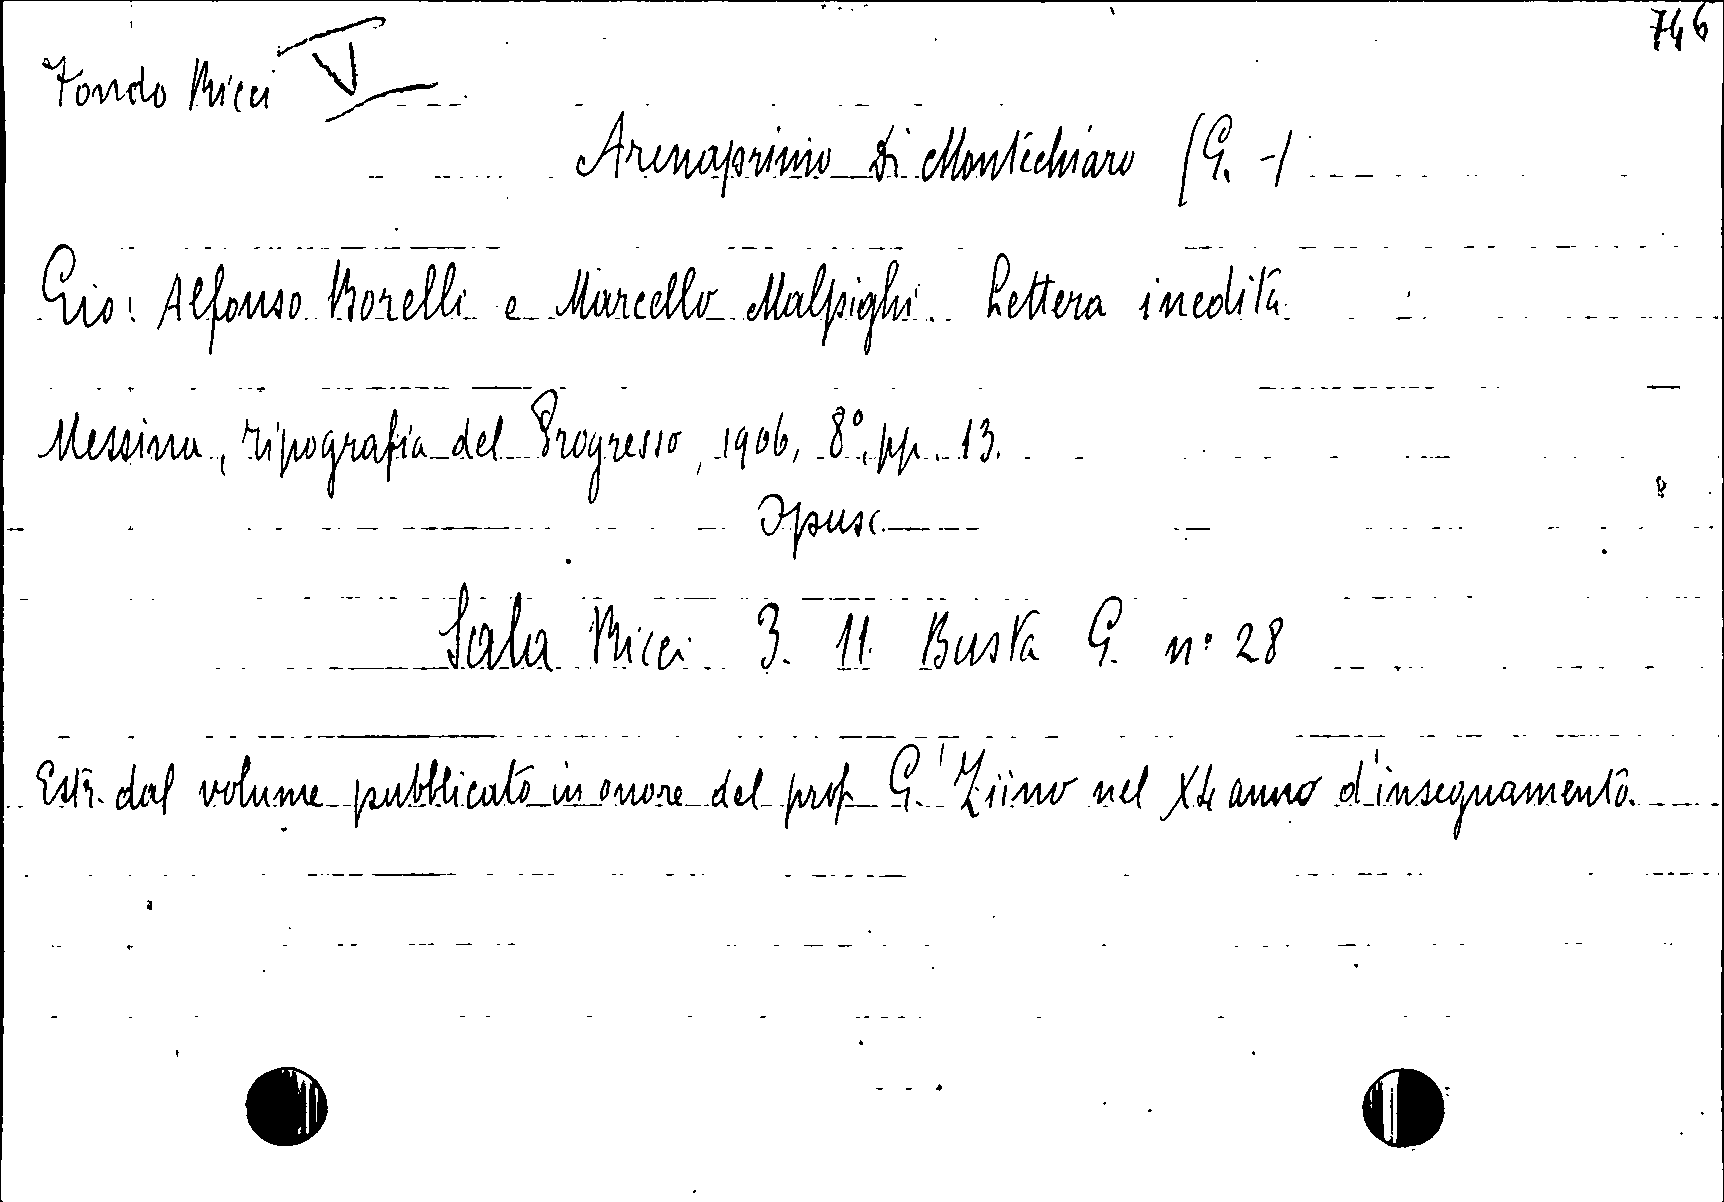 746
Fondo Ricci V
Arenaprimo Di Montechiaro (G. -)
Gio: Alfonso Borelli e Marcello Malpighi. Lettera inedita
Messina, Tipografia del Progresso, 1906, 8°, pp. 13.
Opusc.
Sala Ricci 3. 11. Busta G. n: 28
Estr. dal volume pubblicato in onore del prof. G. Ziino nel XL anno d'insegnamento.